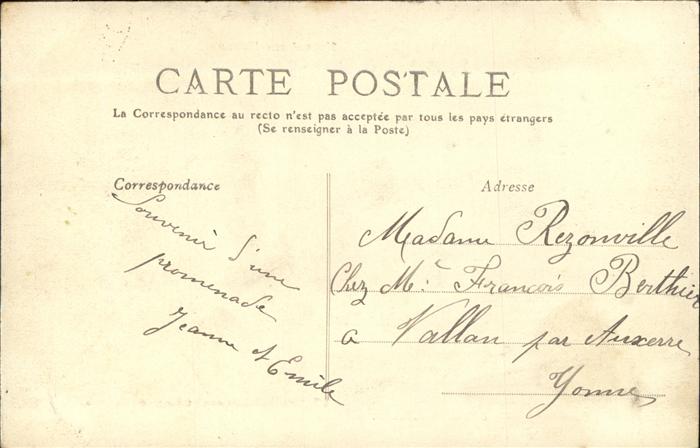 CARTE POSTALE
La Correspondance au recto n'est pas acceptée par tous les pays étrangers
(Se renseigner à la Poste)
Correspondance
Souvenir d'une
promenade
Jeanne et Emile
Adresse
Madame Rezonville
Chez Mr François Berthier
a Vallan par Auxerre
Yonne